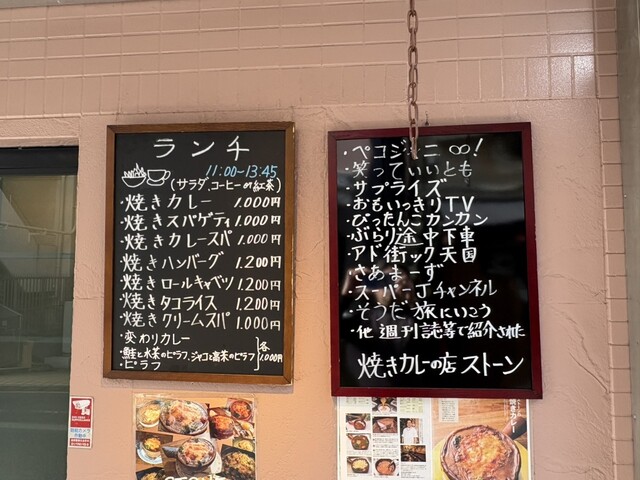 ランチ
11:00~13:45
(サラダ、コーヒーor紅茶)
・焼きカレー 1.000円
・焼きスパゲティ 1.000円
・焼きカレースパ 1.000円
・焼きハンバーグ 1.200円
・焼きロールキャベツ 1.200円
・焼きタコライス 1.200円
・焼きクリームスパ 1.000円
・変わりカレー
・鮭と水菜のピラフ、ジャコと高菜のピラフ
・ピラフ
各1.000円
・ペコジャニ∞!
・笑っていいとも
・サプライズ
・おもいっきりTV
・ぴったんこカンカン
・ぶらり途中下車
・アド街ック天国
・さあまーず
・スーパーJチャンネル
・そうだ旅にいこう
・他週刊誌等で紹介された
焼きカレーの店ストーン
焼きカレー